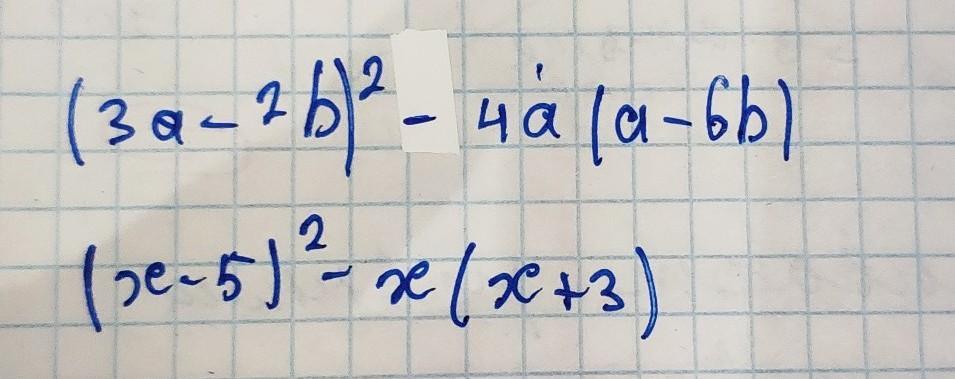 (3a-2b)² - 4a(a-6b)
(x-5)² - x(x+3)